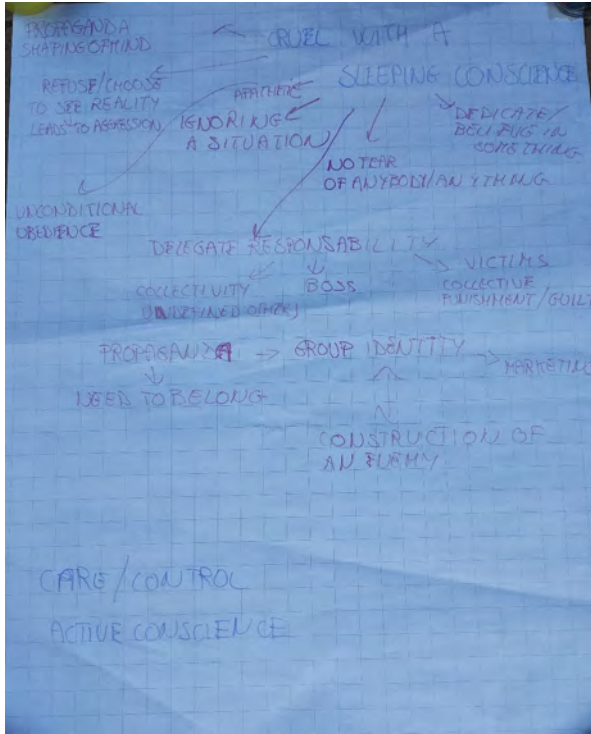 PROPAGANDA
SHAPING OF MIND
CRUEL WITH A
SLEEPING CONSCIENCE
REFUSE/CHOOSE
TO SEE REALITY
LEADS TO AGRESSION
APATHETIC
IGNORING
A SITUATION
DEDICATE/
IN
SOMETHING
NO FEAR
OF ANYBODY/ANYTHING
UNCONDITIONAL
OBEDIENCE
DELEGATE RESPONSABILITY
COLLECTIVITY
UNDEFINED OTHERS
BOSS
VICTIMS
COLLECTIVE
PUNISHMENT/GUILT
PROPAGANDA → GROUP IDENTITY
MARKETING
NEED TO BELONG
CONSTRUCTION OF
AN ENEMY
CARE/CONTROL
ACTIVE CONSCIENCE